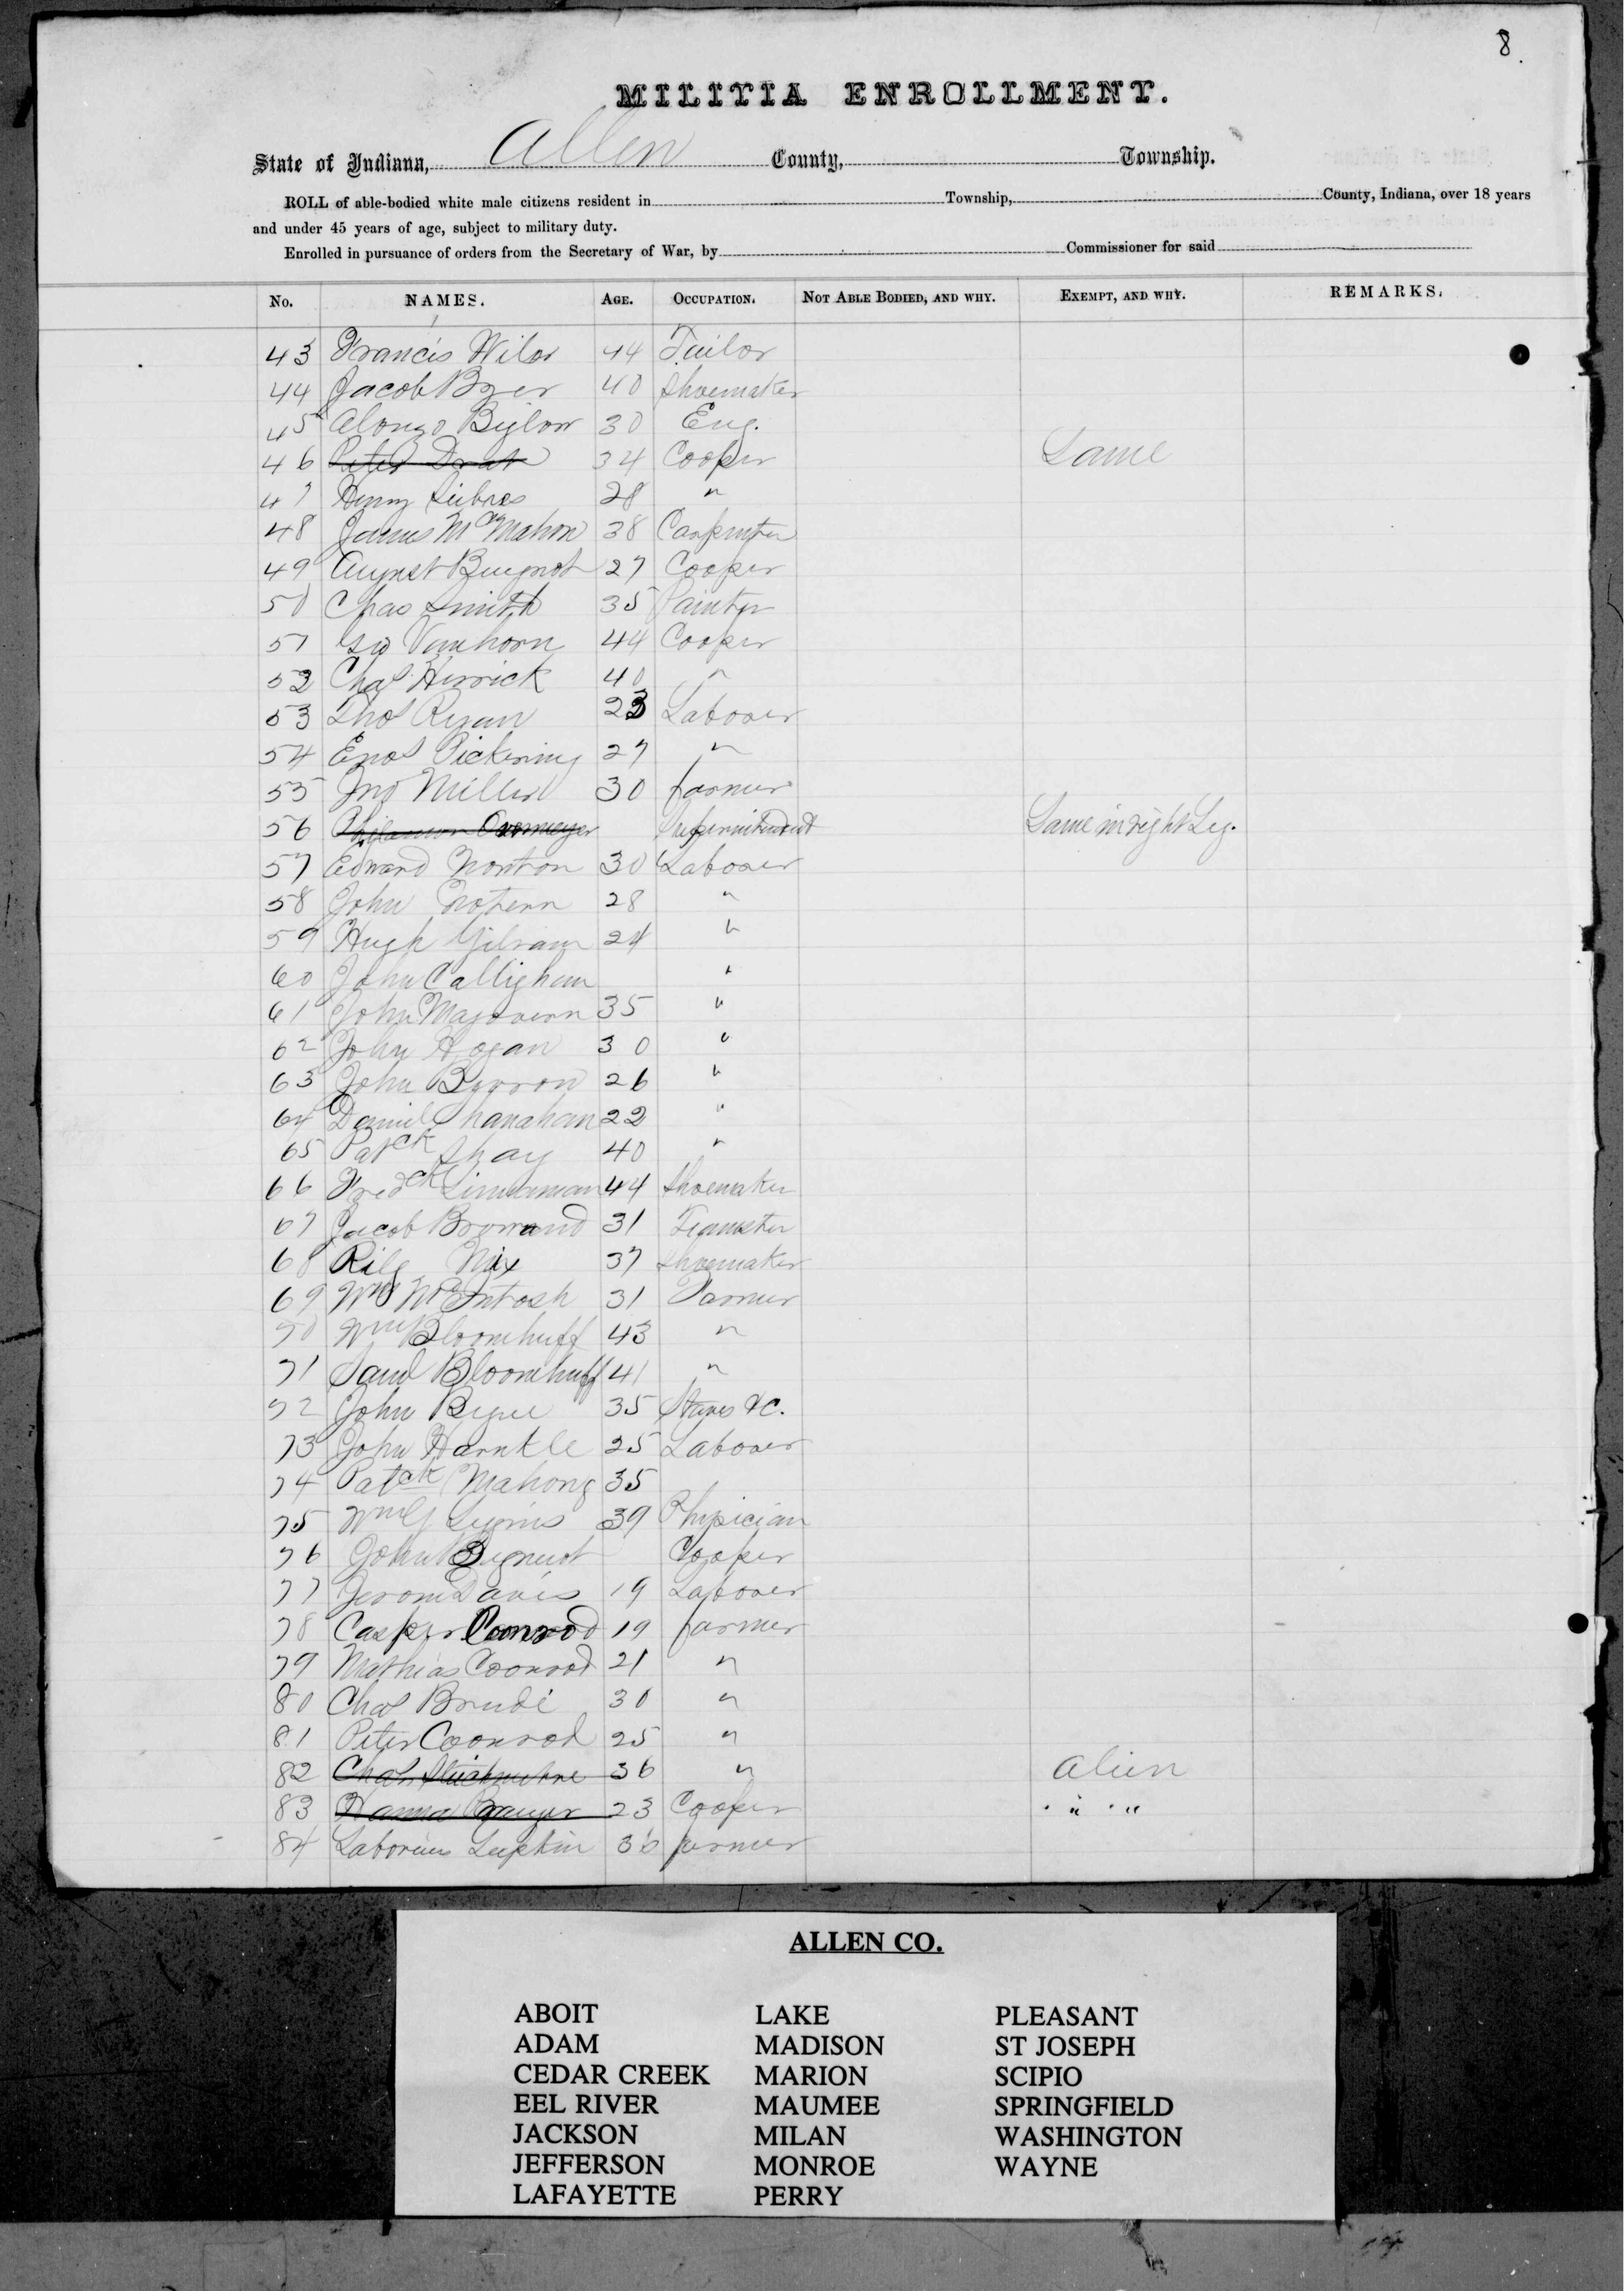 8.
MILITIA ENROLLMENT.
State of Indiana, Allen County, Township.
ROLL of able-bodied white male citizens resident in Township, County, Indiana, over 18 years
and under 45 years of age, subject to military duty.
Enrolled in pursuance of orders from the Secretary of War, by Commissioner for said
No. NAMES. AGE. OCCUPATION. NOT ABLE BODIED, AND WHY. EXEMPT, AND WHY. REMARKS.
43 Francis 44 Tailor
44 Jacob 40 Shoemaker
45 Alonzo 30 Eng.
46 Peter 34 Cooper Lame
47 Henry 28 "
48 James McMahon 38 Carpenter
49 August Bugnot 27 Cooper
50 Chas Smith 35 Painter
51 Geo Vanhorn 44 Cooper
52 Chas Herrick 40 "
53 Thos Ryan 23 Laborer
54 Enos Pickering 27 "
55 Jno Miller 30 farmer
56 Overmeyer Superintendent Lame in right Leg.
57 Edward Norton 30 Laborer
58 John 28 "
59 Hugh 24 "
60 John Callighan "
61 John Magovern 35 "
62 John Hogan 30 "
63 John Byrron 26 "
64 Daniel Shanahan 22 "
65 Patck Shay 40 "
66 Fredck 44 Shoemaker
67 Jacob 31 Teamster
68 Rily Nix 37 Shoemaker
69 Wm McEntosh 31 Farmer
70 Wm Bloomhuff 43 "
71 Saml Bloomhuff 41 "
72 John 35 Staves &C.
73 John Harnkle 25 Laborer
74 Patck Mahony 35
75 Wm 39 Physician
76 John Cooper
77 Jerom Davis 19 Laborer
78 Casper Conrod 19 farmer
79 Mathias Coonrod 21 "
80 Chas Brudi 30 "
81 Peter Coonrod 25 "
82 Chas 36 " Alien
83 23 Cooper " "
84 Laborius 36 farmer
ALLEN CO.
ABOIT LAKE PLEASANT
ADAM MADISON ST JOSEPH
CEDAR CREEK MARION SCIPIO
EEL RIVER MAUMEE SPRINGFIELD
JACKSON MILAN WASHINGTON
JEFFERSON MONROE WAYNE
LAFAYETTE PERRY